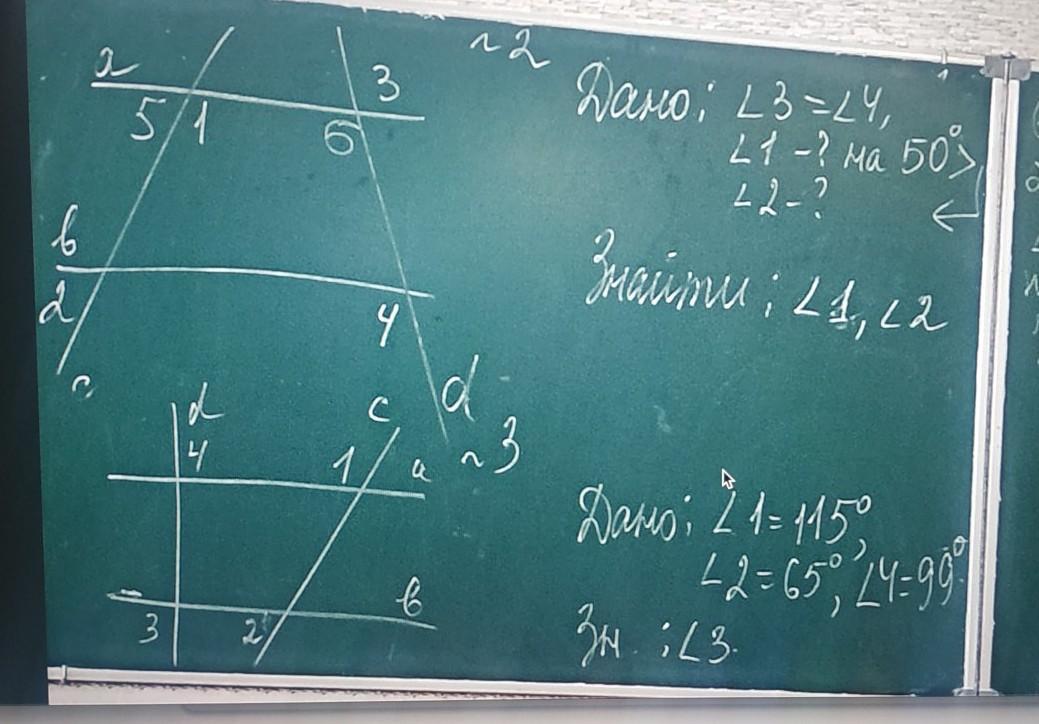 №2
a
3
5 1
6
b
2
4
c
d
Дано: ∠3=∠4,
∠1-? на 50°>
∠2-?
←
Знайти: ∠1, ∠2
№3
d
c
4
1
a
b
3
2
Дано: ∠1=115°,
∠2=65°, ∠4=99°
Зн. : ∠3.